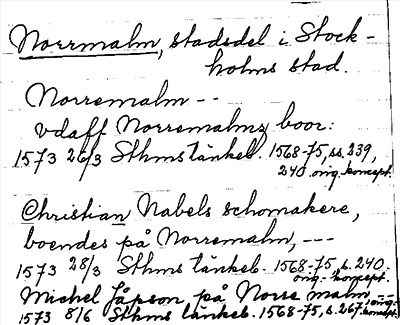 Norrmalm, stadsdel i Stock-
holms stad.
Norremalm --
vdaff Norremalmz boor:
1573 26/3 Sthms tänkeb. 1568-75, ss. 239,
240 orig. koncept.
Christian Nabels schomakere,
boendes på Norremalm, ---
1573 28/3 Sthms tänkeb. 1568-75, s. 240.
orig.-koncept.
Michel Jåpson, på Norre malm --
1573 8/6 Sthms tänkeb. 1568-75, s. 267. orig.-koncept.